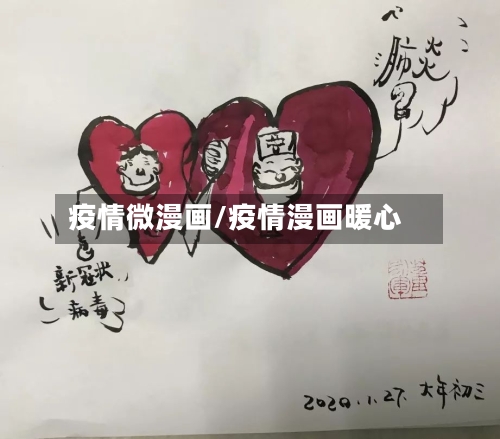 肺炎
疫情微漫画/疫情漫画暖心
新冠状
病毒
2020.1.27. 大年初三